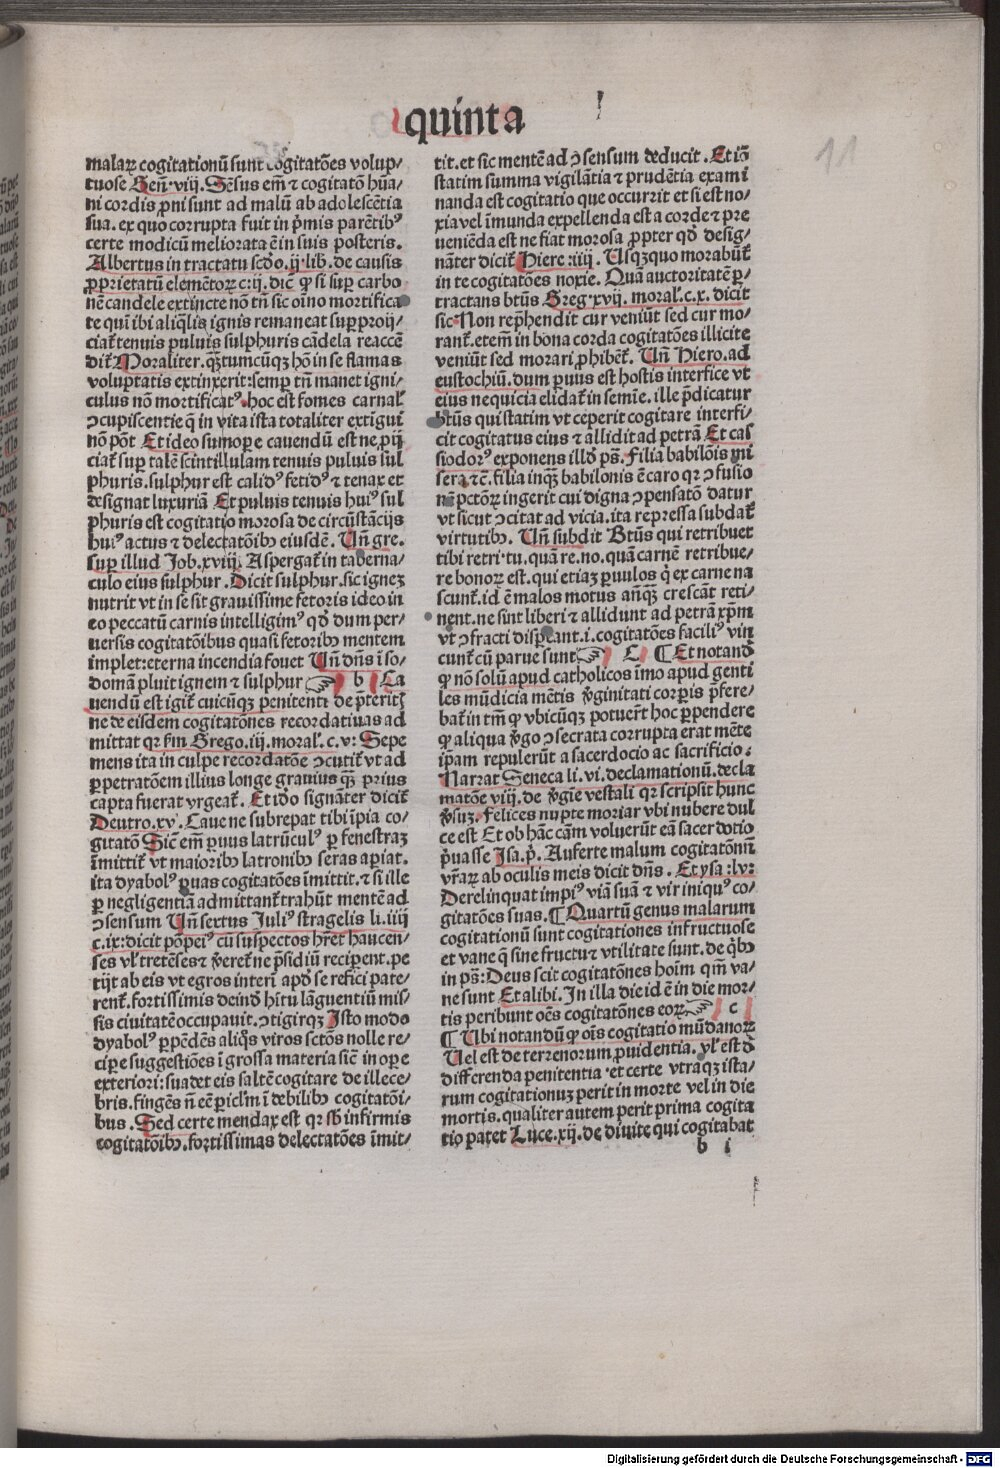 quinta
11
malaꝝ cogitationū sunt cogitatōes volup/
tuose Geñ.viij. Sēsus em̄ ⁊ cogitatō hūa/
ni cordis ꝓni sunt ad malū ab adolescētia
sua. ex quo corrupta fuit in p̄mis parētibꝰ
certe modicū meliorata ē in suis posteris.
Albertus in tractatu scd̄o .ij. lib. de causis
ꝓprietatū elementoꝝ c:ij. dic̄ ꝙ si suꝑ carbo
nē candele extincte nō tn̄ sic oīno mortifica
te qui ibi aliq̄lis ignis remaneat suꝑ proij/
ciat̄ tenuis puluis sulphuris cādela reaccē
dit̄ Moraliter. q̄ꝫtumcūqꝫ hō in se flamas
voluptatis extinxerit: semꝑ tn̄ manet igni/
culus nō mortificatꝰ. hoc est fomes carnal̄
ꝯcupiscentie q̄ in vita ista totaliter extīgui
nō pōt Et ideo sumoꝑe cauendū est ne ꝓij
ciat̄ suꝑ talē scintillulam tenuis puluis sul
phuris. sulphur est calidꝰ fetidꝰ ⁊ tenax et
designat luxuriā Et puluis tenuis huiꝰ sul
phuris est cogitatio morosa de circūstācijs
huiꝰ actus ⁊ delectatōibꝫ eiusdē. Un̄ gre.
suꝑ illud Job.xviij. Aspergat̄ in taberna/
culo eius sulphur. Dicit sulphur. sic igneꝫ
nutrit vt in se sit grauissime fetoris ideo in
eo peccatū carnis intelligimꝰ qd̄ dum per/
uersis cogitatōibus quasi fetoribꝫ mentem
implet: eterna incendia fouet Un̄ dn̄s ī so/
domā pluit ignem ⁊ sulphur ☞ b Ca
uendū est igit̄ cuicūqꝫ penitenti de p̄terit̄
ne de eisdem cogitatōnes recordatiuas ad
mittat qr fm̄ Grego.iij.moral̄. c.v: Sepe
mens ita in culpe recordatōe ꝯcutit̄ vt ad
ꝑpetratōem illius longe grauius q̄ꝫ prius
capta fuerat vrgeat̄. Et ido signāter dicit̄
Deutro.xv. Caue ne subrepat tibi īpia co/
gitatō Sic̄ em̄ ꝑuus latrūculꝰ ꝑ fenestraꝫ
īmittit̄ vt maioribꝫ latronibꝫ seras aꝑiat.
ita dyabolꝰ ꝑuas cogitatōes īmittit. ⁊ si ille
ꝑ negligentiā admittant̄ trahūt mentē ad
ꝯsensum Un̄ sextus Juliꝰ stragelis li.iiij
c.ix: dicit pōpeiꝰ cū suspectos hr̄et haucen/
ses vl̄ tretēses ⁊ v̄eret̄ ne p̄sidiū reciꝑent. pe
tijt ab eis vt egros interī apd̄ se refici pate/
rent̄. fortissimis deind̄ hītu lāguentiū mis/
sis ciuitatē occupauit. ꝯtigirqꝫ Isto modo
dyabolꝰ ꝑpēdēs aliq̄s viros sc̄tōs nolle re/
ciꝑe suggestiōes ī grossa materia sic̄ in oꝑe
exteriori: suadet eis saltē cogitare de illece/
bris. fingēs n̄ eē ꝑicl̄m ī debilibꝫ cogitatōi/
bus. Sed certe mendax est qr sb̄ infirmis
cogitatōibꝫ. fortissimas delectatōes īmit/
tit. et sic mentē ad ꝯsensum deducit. Et iō
statim summa vigilātia ⁊ prudētia exami
nanda est cogitatio que occurrit et si est no/
xia vel īmunda expellenda est a corde ⁊ pre
ueniēda est ne fiat morosa ꝓpter qd̄ desig/
nāter dicit̄ Hiere:iiij. Usqꝫquo morabūt̄
in te cogitatōes noxie. Quā auctoritatē ꝑ/
tractans btūs Greg.xvij. moral̄.c.x. dicit
sic Non rep̄hendit cur veniūt sed cur mo/
rant̄. etem̄ in bona corda cogitatōes illicite
veniūt sed morari ꝓhibēt̄. Un̄ Hiero. ad
eustochiū. dum ꝑuus est hostis interfice vt
eius nequicia elidat̄ in semīe. ille p̄dicatur
btūs qui statim vt ceperit cogitare interfi/
cit cogitatus eius ⁊ allidit ad petrā Et cas
siodorꝰ exponens illd̄ ps̄. Filia babilōis mi
sera ⁊c̄. filia inqꝫ babilonis ē caro qr ꝯfusio
nē pctōꝝ ingerit cui digna ꝯpensatō datur
vt sicut ꝯcitat ad vicia. ita repressa subdat̄
virtutibꝫ. Un̄ subdit Btūs qui retribuet
tibi retri.tu. quā re.no. quā carnē retribue/
re bonoꝝ est. qui etiaꝫ ꝑuulos q̄ ex carne na
scunt̄. id ē malos motus an̄qꝫ crescāt reti/
nent. ne sint liberi ⁊ allidunt ad petrā xp̄m
vt ꝯfracti disꝑeant .i. cogitatōes faciliꝰ vin
cunt̄ cū parue sunt ☞ C ¶ Et notand̄
ꝙ nō solū apud catholicos īmo apud genti
les mūdicia mētis v̄ginitati corꝑis p̄fere/
bat̄ in tm̄ ꝙ vbicūqꝫ potuer̄t hoc ꝑpendere
ꝙ aliqua v̄go ꝯsecrata corrupta erat mēte
ipam repulerūt a sacerdocio ac sacrificio:
Narrat Seneca li.vi.declamationū. decla
matōe viij. de v̄gīe vestali qr scripsit hunc
v̄suꝫ. Felices nupte moriar vbi nubere dul
ce est Et ob hāc cām voluerūt eā sacerdotio
p̄uasse Isa.p̄. Auferte malum cogitatōnū
vr̄aꝝ ab oculis meis dicit dn̄s. Et ysa:lv:
Derelinquat impiꝰ viā suā ⁊ vir iniqꝰ co/
gitatōes suas. ¶ Quartū genus malarum
cogitationū sunt cogitationes infructuose
et vane q̄ sine fructu ⁊ vtilitate sunt. de q̄bꝫ
in ps̄: Deus scit cogitatōnes hoīm qm̄ va/
ne sunt Et alibi. In illa die id ē in die mor/
tis peribunt oēs cogitatōnes eoꝝ ☞ c
¶ Ubi notandū ꝙ oīs cogitatio mūdanoꝝ
Uel est de terrenorum ꝓuidentia. vl̄ est d̄
differenda penitentia. et certe vtraqꝫ ista/
rum cogitationuꝫ perit in morte vel in die
mortis. qualiter autem perit prima cogita
tio patet Luce.xij. de diuite qui cogitabat
b i
Digitalisierung gefördert durch die Deutsche Forschungsgemeinschaft - DFG